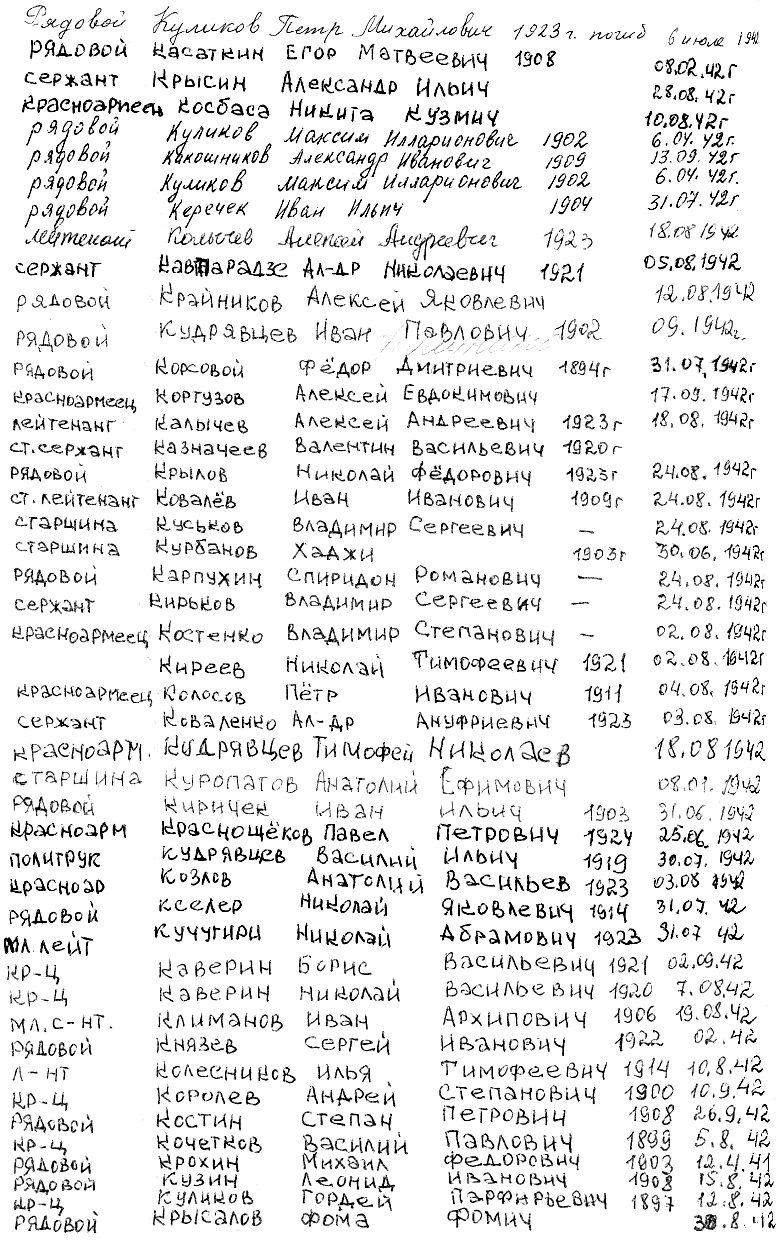 Рядовой Куликов Петр Михайлович 1923 г. погиб в июле 1942
рядовой Касаткин Егор Матвеевич 1908 08.02.42г
сержант Крысин Александр Ильич 28.08.42г
Красноармеец Косбаса Никита Кузмич 10.08.42г
рядовой Куликов Максим Илларионович 1902 6.04.42г
рядовой Какошников Александр Иванович 1909 13.09.42г
рядовой Куликов Максим Илларионович 1902 6.04.42г.
рядовой Керечек Иван Ильич 1904 31.07.42г
лейтенант Колычев Алексей Андреевич 1923 18.08 1942
сержант Кавтарадзе Ал-др Николаевич 1921 05.08.1942
рядовой Крайников Алексей Яковлевич 12.08.1942
рядовой Кудрявцев Иван Павлович 1902 09.1942г.
рядовой Корсовой Фёдор Дмитриевич 1894г 31.07.1942г
красноармеец Кортузов Алексей Евдокимович 17.09.1942г
лейтенант Калычев Алексей Андреевич 1923г 18.08.1942г
ст.сержант Казначеев Валентин Васильевич 1920г
рядовой Крылов Николай Фёдорович 1923г 24.08.1942г
ст.лейтенант Ковалёв Иван Иванович 1909г 24.08.1942г
старшина Куськов Владимир Сергеевич — 24.08.1942г
старшина Курбанов Хаджи 1903г 30.06.1942г
рядовой Карпухин Спиридон Романович — 24.08.1942г
сержант Кирьков Владимир Сергеевич — 24.08.1942г
красноармеец Костенко Владимир Степанович — 02.08.1942г
Киреев Николай Тимофеевич 1921 02.08.1942г
красноармеец Колосов Пётр Иванович 1911 04.08.1942г
сержант Коваленко Ал-др Ануфриевич 1923 03.08.1942г
красноарм. Кудрявцев Тимофей Николаев 18.08 1942
старшина Куропатов Анатолий Ефимович 08.01.1942
рядовой Киричек Иван Ильич 1903 31.06.1942
красноарм Краснощёков Павел Петрович 1924 25.06.1942
политрук Кудрявцев Василий Ильич 1919 30.07.1942
красноар Козлов Анатолий Васильев 1923 03.08 1942
рядовой Кселер Николай Яковлевич 1914 31.07.42
мл.лейт Кучугири Николай Абрамович 1923 31.07 42
кр-ц Каверин Борис Васильевич 1921 02.09.42
кр-ц Каверин Николай Васильевич 1920 7.08.42
мл.с-нт. Климанов Иван Архипович 1906 19.08.42
рядовой Князев Сергей Иванович 1922 02.42
л-нт Колесников Илья Тимофеевич 1914 10.8.42
кр-ц Королев Андрей Степанович 1900 10.9.42
рядовой Костин Степан Петрович 1908 26.9.42
кр-ц Кочетков Василий Павлович 1899 5.8.42
рядовой Крохин Михаил Федорович 1903 12.4.41
рядовой Кузин Леонид Иванович 1908 15.8.42
кр-ц Куликов Гордей Парфирьевич 1897 12.8.42
рядовой Крысалов Фома Фомич .8.42